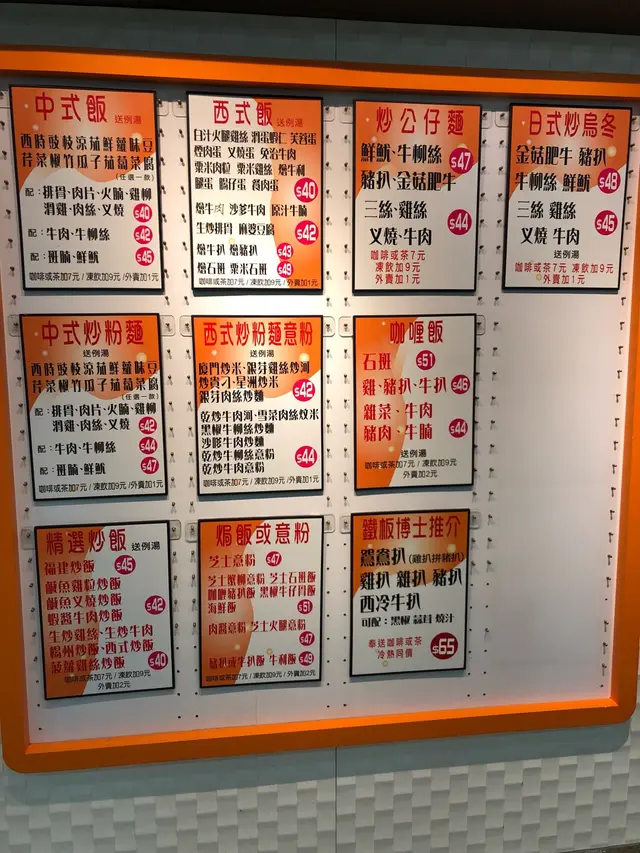 中式飯 送例湯
西時豉枝涼茄鮮蘿味豆
芹菜椒竹瓜子茄蔔菜腐
(任選一款)
配：排骨、肉片、火腩、雞柳
滑雞、肉絲、叉燒 $40
配：牛肉、牛柳絲 $42
配：斑腩、鮮魷 $45
咖啡或茶加7元 / 凍飲加9元 / 外賣加1元
西式飯 送例湯
白汁火腿雞絲 滑蛋蝦仁 芙蓉蛋
煙肉蛋 叉燒蛋 免治牛肉
粟米肉粒 粟米雞絲 燴牛利
腿蛋 腸仔蛋 餐肉蛋 $40
燴牛肉 沙嗲牛肉 原汁牛腩
生炒排骨 麻婆豆腐 $42
燴牛扒 燴豬扒 $43
燴石斑 粟米石斑 $49
咖啡或茶加7元 / 凍飲加9元 / 外賣加1元
炒公仔麵
鮮魷、牛柳絲 $47
豬扒、金菇肥牛
三絲、雞絲 $44
叉燒、牛肉
咖啡或茶7元
凍飲加9元
外賣加1元
日式炒烏冬
金菇肥牛 豬扒
牛柳絲 鮮魷 $48
三絲 雞絲 $45
叉燒 牛肉
送例湯
咖啡或茶7元 凍飲加9元
外賣加1元
中式炒粉麵
送例湯
西時豉枝涼茄鮮蘿味豆
芹菜椒竹瓜子茄蔔菜腐
(任選一款)
配：排骨、肉片、火腩、雞柳
滑雞、肉絲、叉燒 $42
配：牛肉、牛柳絲 $44
配：斑腩、鮮魷 $47
咖啡或茶加7元 / 凍飲加9元 / 外賣加1元
西式炒粉麵意粉
送例湯
廈門炒米、銀芽雞絲炒河
炒貴刁、星洲炒米
銀芽肉絲炒麵 $42
乾炒牛肉河、雪菜肉絲炆米
黑椒牛柳絲炒麵
沙嗲牛肉炒麵
乾炒牛柳絲意粉 $44
乾炒牛肉意粉
咖啡或茶加7元 / 凍飲加9元 / 外賣加1元
咖喱飯
石斑 $51
雞、豬扒、牛扒 $46
雜菜、牛肉
豬肉、牛腩 $44
送例湯
咖啡或茶加7元 / 凍飲加9元
外賣加2元
精選炒飯 送例湯
福建炒飯 $45
鹹魚雞粒炒飯
鹹魚叉燒炒飯 $42
蝦醬牛肉炒飯
生炒雞絲、生炒牛肉
楊州炒飯、西式炒飯
菠蘿雞絲炒飯 $40
咖啡或茶加7元 / 凍飲加9元
外賣加2元
焗飯或意粉
芝士意粉 $47
芝士蟹柳意粉 芝士石斑飯
咖喱豬扒飯 黑椒牛仔骨飯
海鮮飯 $51
肉醬意粉 芝士火腿意粉
$47
豬扒或牛扒飯 牛利飯 $49
咖啡或茶加7元 / 凍飲加9元 / 外賣加2元
鐵板博士推介
鴛鴦扒 (雞扒拼豬扒)
雞扒 雜扒 豬扒
西冷牛扒
可配：黑椒 蒜茸 燒汁
奉送咖啡或茶
冷熱同價 $65